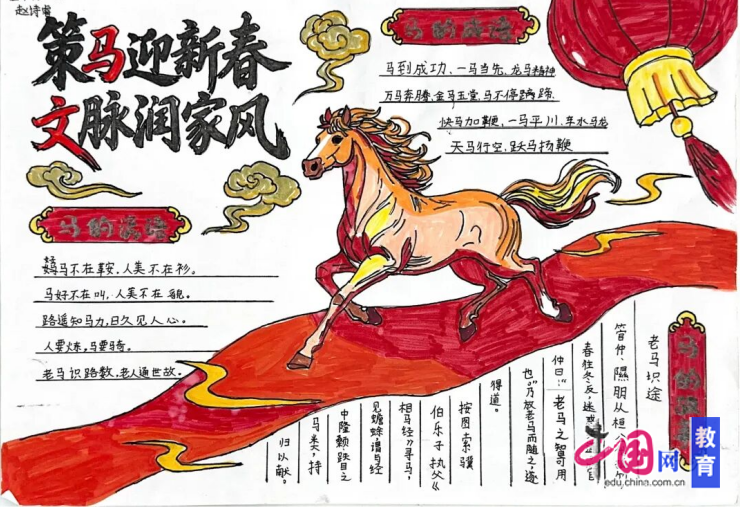 赵诗睿
策马迎新春
文脉润家风
马的成语
马到成功、一马当先、龙马精神
万马奔腾、金马玉堂、马不停蹄
快马加鞭、一马平川、车水马龙
天马行空、跃马扬鞭
马的谚语
马不在鞍，人美不在衫。
马好不在叫，人美不在貌。
路遥知马力，日久见人心。
人要炼，马要骑。
老马识路数，老人通世故。
马的故事
老马识途
管仲、隰朋从桓公
春往冬反，迷
仲曰："老马之智可用
也。"乃放老马而随之，遂
得道。
按图索骥
伯乐子执父《
相马经》寻马，
见蟾蜍谓与经
中隆颡跌目之
马类，持
归以献。
中国网
教育
edu.china.com.cn